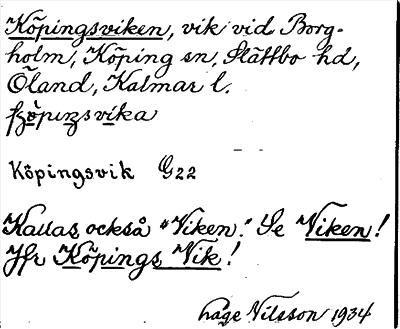 Köpingsviken, vik vid Borg-
holm, Köping sn, Slättbo hd,
Öland, Kalmar l.
Köpingsvik G22
Kallas också "Viken." Se Viken!
Jfr Köpings Vik!
håge Nilsson 1934